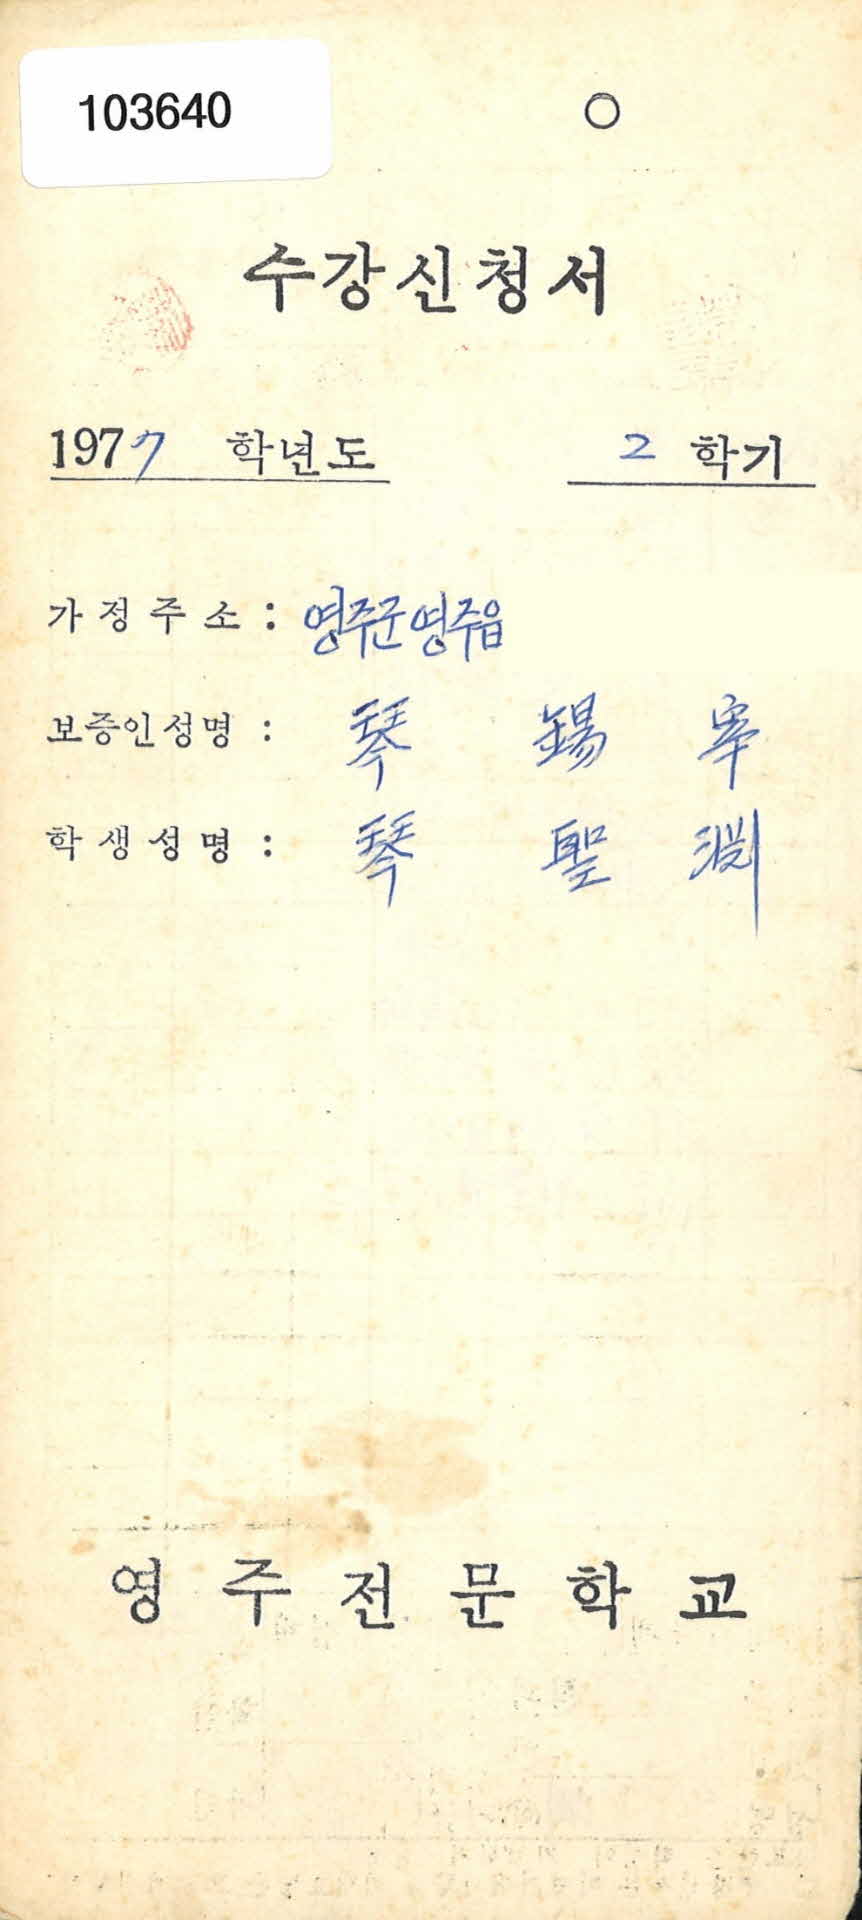 103640
○
수강신청서
1977 학년도 2 학기
가정주소 : 영주군영주읍
보증인성명 : 琴 錫 宰
학생성명 : 琴 聖 渊
영주전문학교